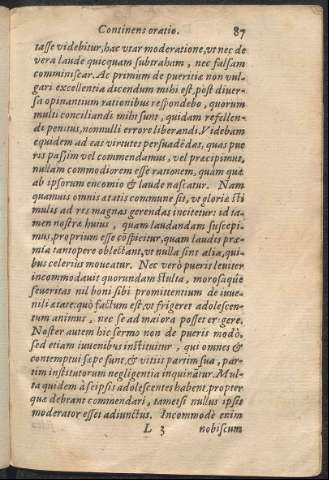 Continens oratio. 87
tasse videbitur, hac vtar moderatione, vt nec de
vera laude quicquam subtraham, nec falsam
comminiscar. Ac primum de pueritiæ non vul-
gari excellentia dicendum mihi est, post diuer-
sa opinantium rationibus respondebo, quorum
multi conciliandi mihi sunt, quidam refellen-
di penitus, nonnulli errore liberandi. Videbam
equidem ad eas virtutes persuadēdas, quas pue
ris passim vel commendamus, vel præcipimus,
nullam commodiorem esse rationem, quàm quæ
ab ipsorum encomio & laude nascatur. Nam
quamuis omnis ætatis commune sit, vt gloriæ sti
mulis ad res magnas gerendas incitetur: id ta-
men nostræ huius, quam laudandam suscepi-
mus, proprium esse cōspicitur, quam laudis præ-
mia tantopere oblectant, vt nulla sint alia, qui-
bus celeriùs moueatur. Nec verò pueris leuiter
incommodauit quorundam stulta, morosaq́ue
seueritas nil boni sibi promittentium de iuue-
nili ætate: quò factum est, vt frigeret adolescen-
tum animus, nec se ad maiora posset erigere.
Noster autem hic sermo non de pueris modò,
sed etiam iuuenibus instituitur, qui omnes &
contemptui sæpe sunt, & vitiis partim sua, par-
tim institutorum negligentia inquinātur. Mul-
ta quidem à seipsis adolescentes habent, propter
quæ debeant commendari, tametsi nullus ipsis
moderator esset adiunctus. Incommodè enim
L 3 nobiscum